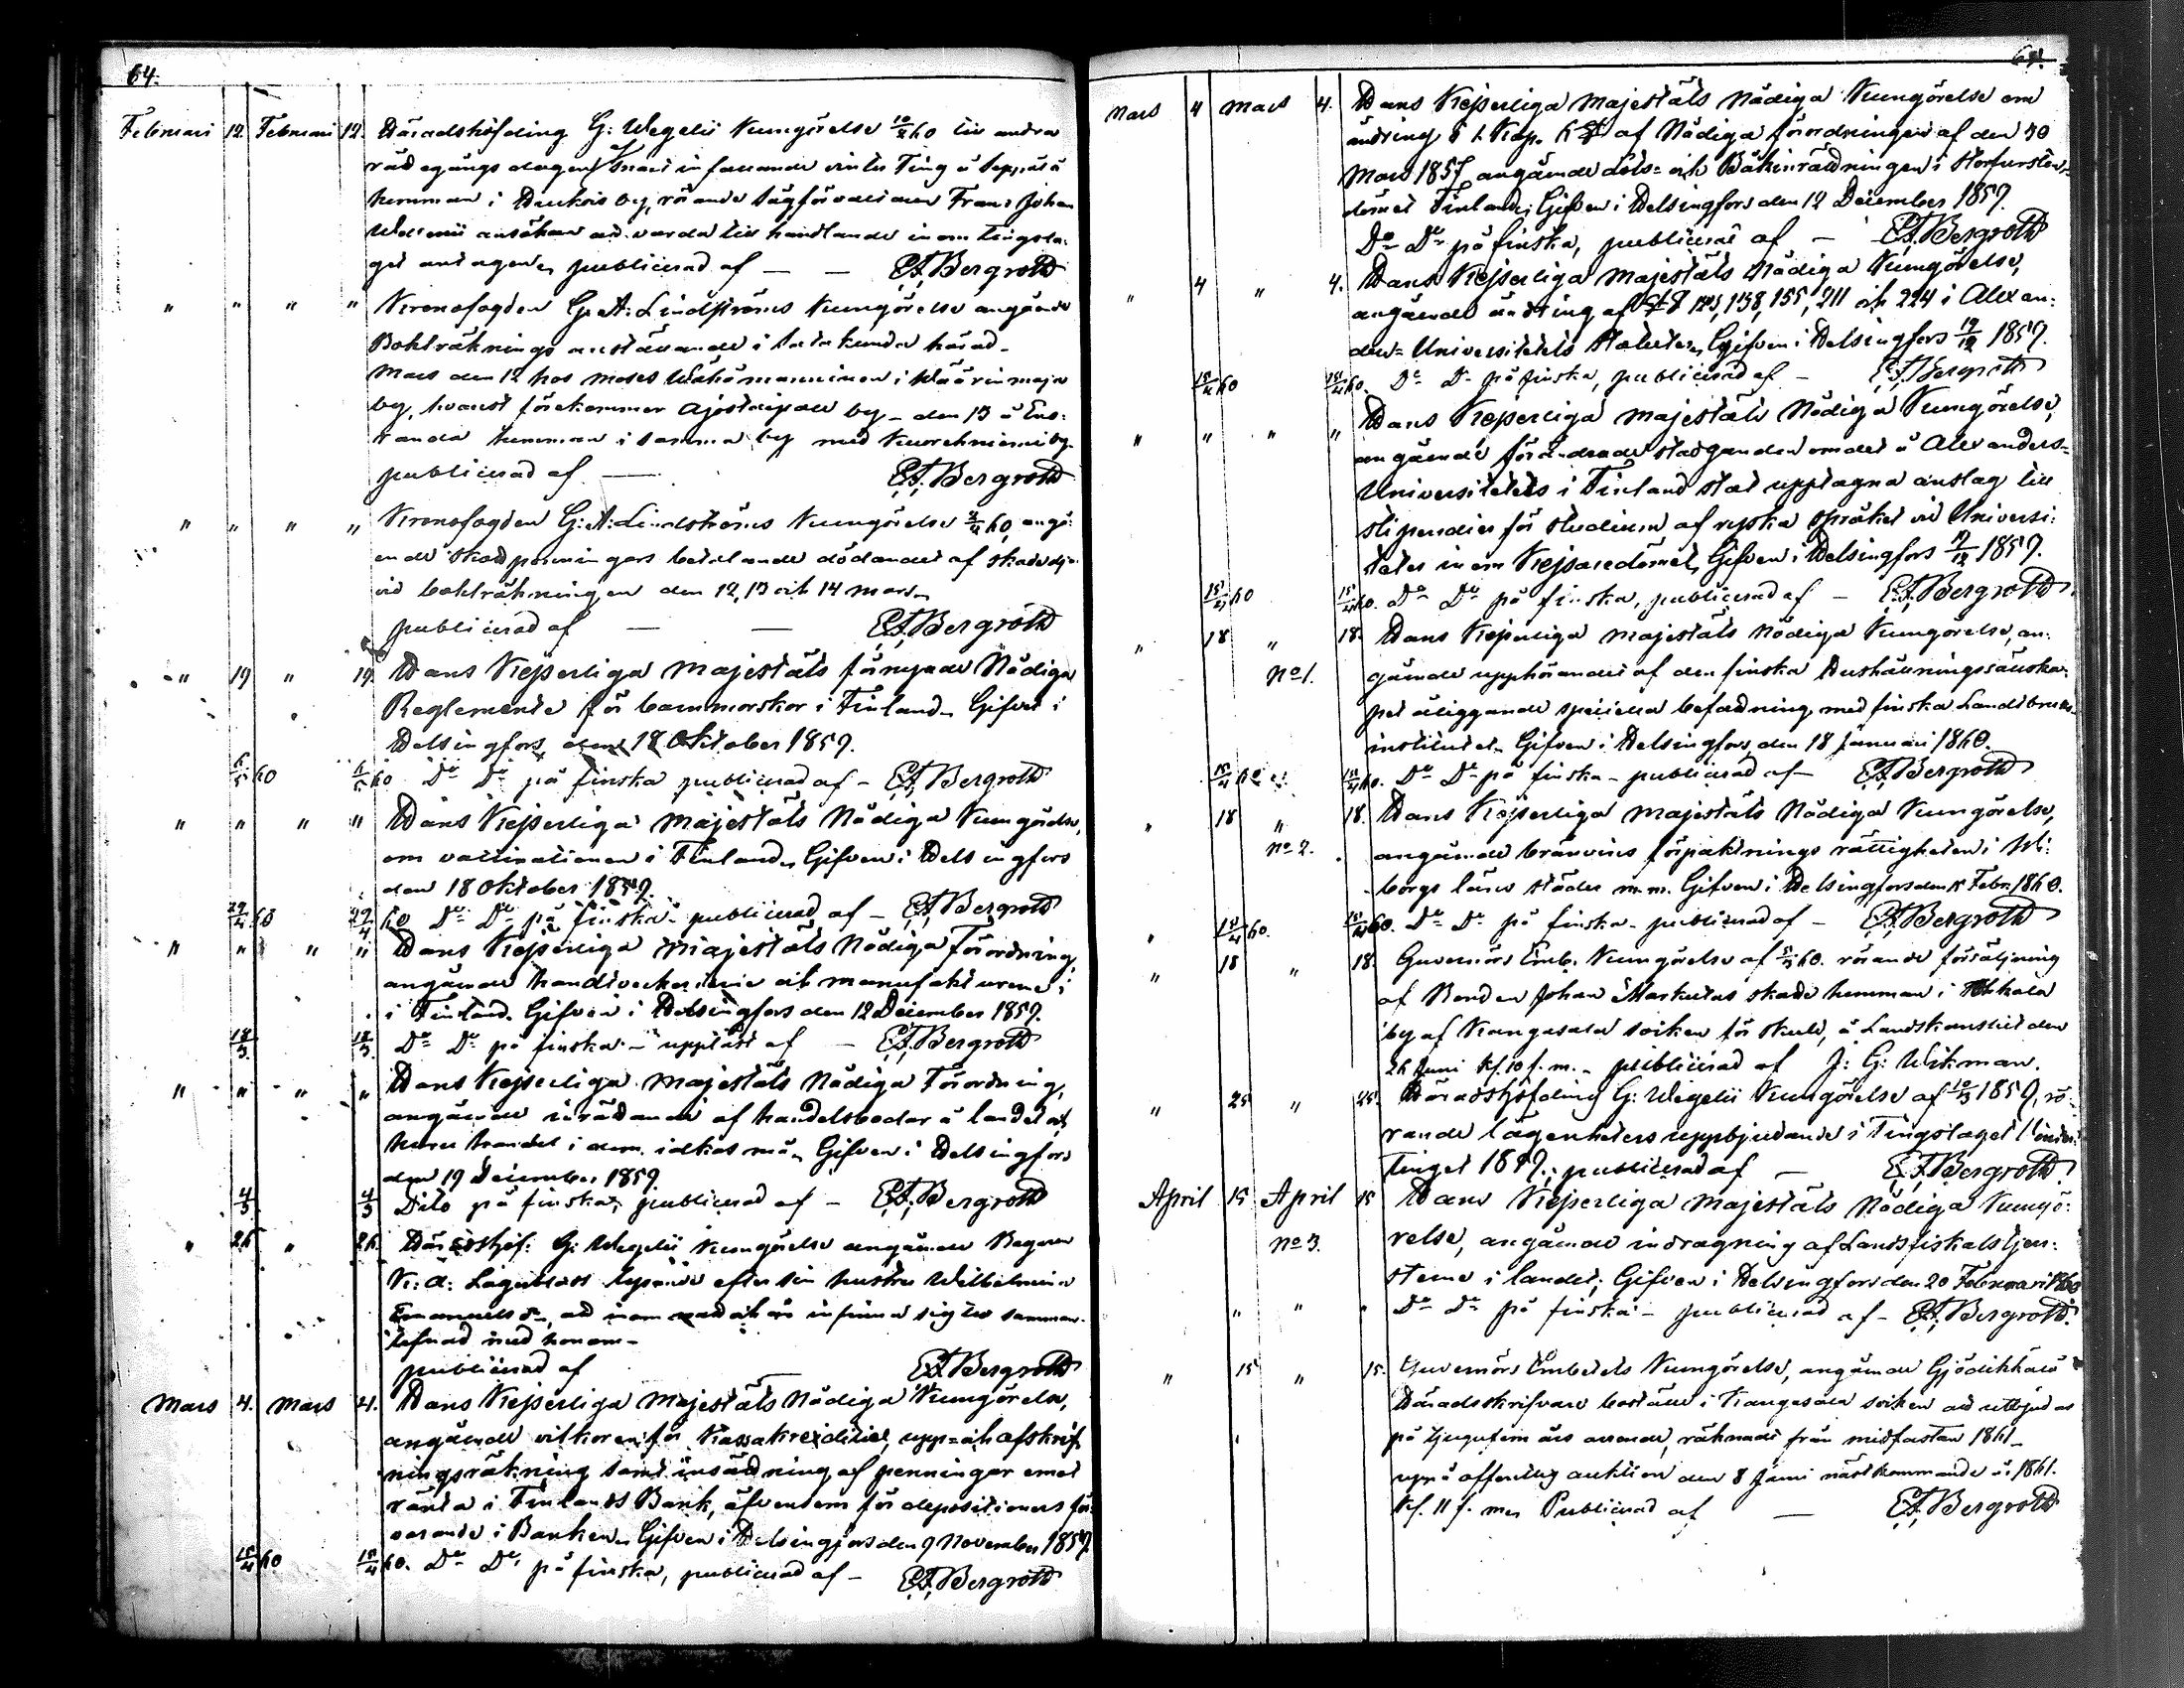 64.
Februari 12 Februari 12. Häradshöfding G: Wegelii Kungörelse 10/2 60 till andra
rättegångs dagen snart infallande vinter Ting å Seppälä
hemman i by, rörande Sågförvaltaren Frans Johan
ansökan att varda till handlande inom Tingsla-
get antagen, publicerad af — — E.A. Bergroth
" " " " Kronofogden G: A: Lindströms Kungörelse angående
Bokräknings anställande i Satakunda härad -
Mars den 12 hos Moses i
by, hvarest förekommer by - den 13 å
randa hemman i samma by med by
publicerad af — E.A. Bergroth
" " " " Kronofogden G: A: Lindströms Kungörelse 60, angå-
ende skottpenningars betalande dödandet af skadedjur
vid bokräkningen den 12, 13 och 14 mars.
publicerad af — — E.A. Bergroth
" 19 " 19. Hans Kejserliga Majestäts förnyade Nådiga
Reglemente för barnmorskor i Finland. Gifvet i
Helsingfors den 18 Oktober 1859.
6/5 60 6/5 60 Do Do på finska publicerad af - E.A. Bergroth
" " " " Hans Kejserliga Majestäts Nådiga Kungörelse,
om vaccinationen i Finland, Gifven i Helsingfors
den 18 Oktober 1859.
29/4 60 29/4 60 Do Do på finska - publicerad af - E.A. Bergroth
" " " " Hans Kejserliga Majestäts Nådiga Förordning,
angående handtverkerierne och manufakturerne
i Finland. Gifven i Helsingfors den 12 December 1859.
18/3. 18/3. Do Do på finska - uppläst af - E.A. Bergroth
" " " " Hans Kejserliga Majestäts Nådiga Förordning,
angående inrättande af handelsbodar å landet och
huru handel i dem idkas må, Gifven i Helsingfors
den 19 December 1859.
4/3 4/3 Dito på finska, publicerad af - E.A. Bergroth
" 26 " 26. Häradshöf: G: Wegelii Kungörelse angående
K: A: efter sin hustru Wilhelmina
att inom natt och år infinna sig till samman-
lefnad med honom -
publicerad af — E.A. Bergroth
Mars 4. Mars 4. Hans Kejserliga Majestäts Nådiga Kungörelse,
angående vilkoren för Kassakreditiv, upp- och afskrif-
ningsräkning samt insättning af penningar emot
ränta i Finlands Bank, äfvensom för depositioners för-
varande i Banken, Gifven i Helsingfors den 9 November 1859.
15/4 60 15/4 60. Do Do på finska, publicerad af - E.A. Bergroth
Mars 4 Mars 4. Hans Kejserliga Majestäts Nådiga Kungörelse om
ändring i 1 Kap. 6 § af Nådiga förordningen af den 30
Mars 1857 angående Lots- och Båkinrättningen i Storfursten-
dömet Finland; Gifven i Helsingfors den 12 December 1859.
Do Do på finska, publicerad af — E.A. Bergroth
" 4 " 4. Hans Kejserliga Majestäts Nådiga Kungörelse,
angående ändring af §§ 123, 138, 155, 211 och 224 i Alexan-
ders- Universitetets Statuter, Gifven i Helsingfors 19/12 1859.
15/4 60 15/4 60. Do Do på finska, publicerad af — E.A. Bergroth
" " " " Hans Kejserliga Majestäts Nådiga Kungörelse,
angående förändrade stadganden om det å Alexanders-
Universitetets i Finland stat upptagna anslag till
stipendier för studium af ryska språket vid Universi-
teter inom Kejsaredömet, Gifven i Helsingfors 19/12 1859.
15/4 60 15/4 60. Do Do på finska, publicerad af — E.A. Bergroth
" 18 " 18. Hans Kejserliga Majestäts Nådiga Kungörelse, an-
No 1. gående upphörandet af den finska Hushållningssällska-
pet åliggande speciella befattning med finska Landtbruks-
institutet. Gifven i Helsingfors den 18 Januari 1860.
15/4 60 15/4 60. Do Do på finska - publicerad af — E.A. Bergroth
" 18 " 18. Hans Kejserliga Majestäts Nådiga Kungörelse,
No 2. angående bränvins förpaktnings rättigheten i Wi-
borgs läns städer m.m. Gifven i Helsingfors den 15 Febr. 1860.
15/4 60. 15/4 60. Do Do på finska - publicerad af — E.A. Bergroth
" 18 " 18. Guvernörs Emb. Kungörelse af 5/3 60. rörande försäljning
af Bonden Johan skatte hemman i
by af Kangasala socken för skuld, å Landskansliet den
26 Juni kl. 10 f. m. - publicerad af J: G: Wikman.
" 25 " 25. Häradshöfding G: Wegelii Kungörelse af 10/3 1859, rö-
rande lägenheters uppbjudande i Tingslaget
tinget 1859; publicerad af — E.A. Bergroth
April 15 April 15 Hans Kejserliga Majestäts Nådiga Kungö-
No 3. relse, angående indragning af Landsfiskalstjen-
sterne i landet; Gifven i Helsingfors den 20 Februari 1860
" " " Do Do på finska - publicerad af - E.A. Bergroth.
" 15 " 15. Guvernörs Embetets Kungörelse, angående
Häradsskrifvare boställe i Kangasala socken att utbjudas
på tjugufem års arrende, räknadt från midfastan 1861 -
uppå offentlig auktion den 8 Juni nästkommande år 1861.
kl. 11 f. m., Publicerad af — E.A. Bergroth